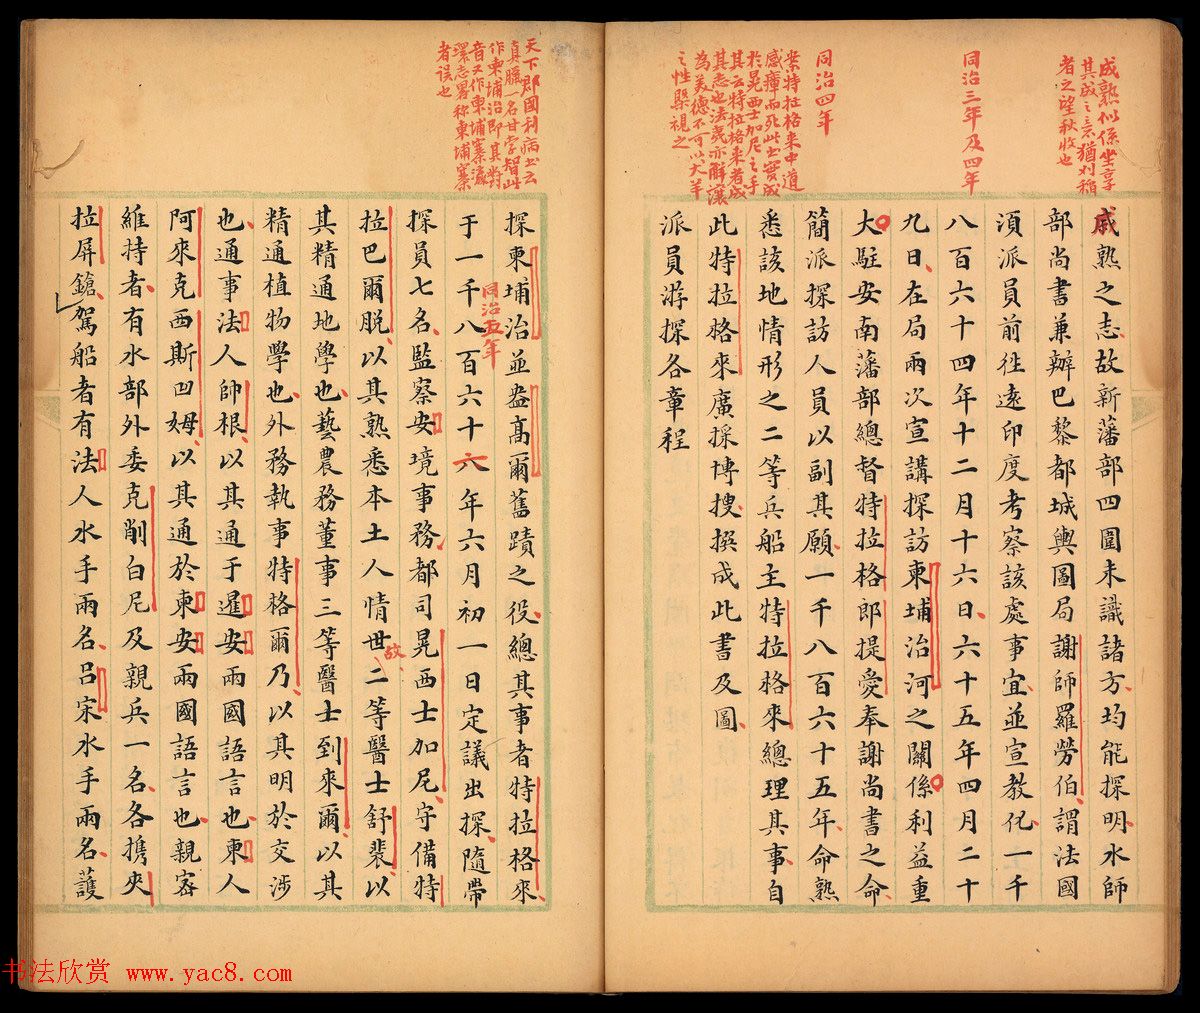 成熟似係坐享
其成之意猶刈稻
者之望秋收也
同治三年及四年
同治四年
案特拉格來中道
感瘴而死此書實成
於晃西士加尼之手
其云特拉格來者成
其志也法夷亦解讓
為美德不可以犬羊
之性槩視之
成熟之志故新藩部四圍未識諸方均能探明水師
部尚書兼辦巴黎都城輿圖局謝師羅勞伯謂法國
須派員前徃遠印度考察該處事宜並宣教化一千
八百六十四年十二月十六日六十五年四月二十
九日在局兩次宣講探訪柬埔治河之關係利益重
大駐安南藩部總督特拉格郎提愛奉謝尚書之命
簡派探訪人員以副其願一千八百六十五年命熟
悉該地情形之二等兵船主特拉格來總理其事自
此特拉格來廣採博搜撰成此書及圖
派員游探各章程
天下郡國利病書云
真臘一名甘孛智此
作柬埔治即其對
音又作柬埔寨瀛
環志畧称東埔寨
者误也
探柬埔治並盎高爾舊蹟之役總其事者特拉格來
于一千八百六十六年六月初一日定議出探隨帶
同治五年
探員七名監察安境事務都司晃西士加尼守備特
拉巴爾脱以其熟悉本土人情世故二等醫士舒裴以
其精通地學也藝農務董事三等醫士到來爾以其
精通植物學也外務執事特格爾乃以其明於交涉
也通事法人帥根以其通于暹安兩國語言也柬人
阿來克西斯凹姆以其通於柬安兩國語言也親密
維持者有水部外委克削白尼及親兵一名各携夾
拉屏鎗駕船者有法人水手兩名呂宋水手兩名護
书法欣赏 www.yac8.com